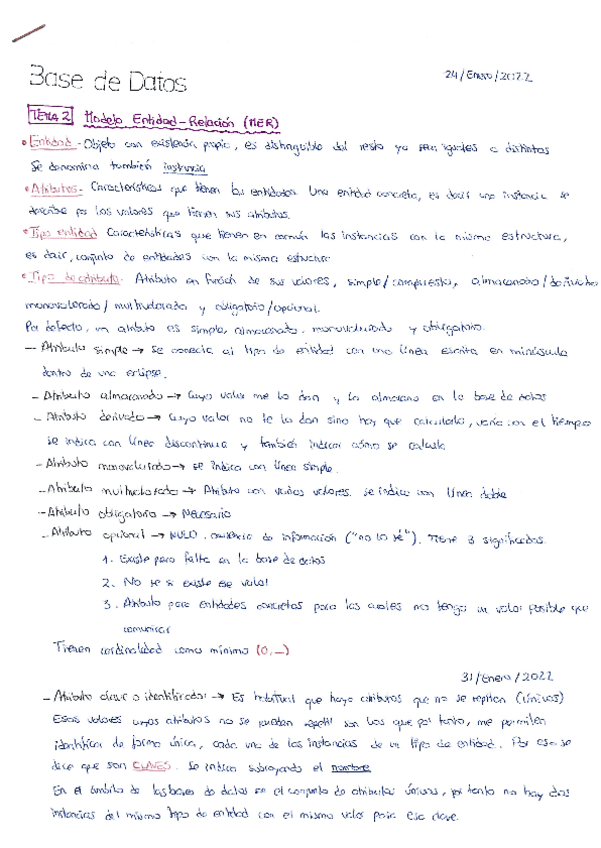 Base de Datos
24/Enero/2022
TEMA 2 Modelo Entidad-Relación (MER)
• Entidad - Objeto con existencia propia, es distinguible del resto ya sean iguales o distintas
Se denomina también instancia
• Atributos - Características que tienen las entidades. Una entidad concreta, es decir una instancia se
describe por los valores que tienen sus atributos.
• Tipo entidad Características que tienen en común las instancias con la misma estructura,
es decir, conjunto de entidades con la misma estructura
• Tipo de atributo - Atributo en función de sus valores, simple/compuesto, almacenado/derivado
monovalorado/multivalorado y obligatorio/opcional.
Por defecto, un atributo es simple, almacenado, monovalorado y obligatorio.
- Atributo simple → Se conecta al tipo de entidad con una línea escrita en minúscula
dentro de una eclipse.
- Atributo almacenado → Cuyo valor me lo dan y lo almaceno en la base de datos
- Atributo derivado → Cuyo valor no te lo dan sino hay que calcularlo, varía con el tiempo
se indica con línea discontinua y también indicar cómo se calcula
- Atributo monovalorado → se indica con línea simple.
- Atributo multivalorado → Atributo con varios valores. se indica con línea doble
- Atributo obligatorio → Necesario
- Atributo opcional → NULO, ausencia de información ("no lo sé"). Tiene 3 significados
1. Existe pero falta en la base de datos
2. No se si existe ese valor
3. Atributo para entidades concretas para las cuales no tengo un valor posible que
comunicar
Tienen cardinalidad como mínimo (0,_)
31/Enero/2022
- Atributo clave o identificador → Es habitual que haya atributos que no se repitan (únicos)
Esos valores cuyos atributos no se pueden repetir son los que por tanto, me permiten
identificar de forma única, cada una de las instancias de un tipo de entidad. Por eso se
dice que son CLAVES. Se indica subrayando el nombre
En el ámbito de las bases de datos en el conjunto de atributos únicos, por tanto no hay dos
instancias del mismo tipo de entidad con el mismo valor para esa clave.